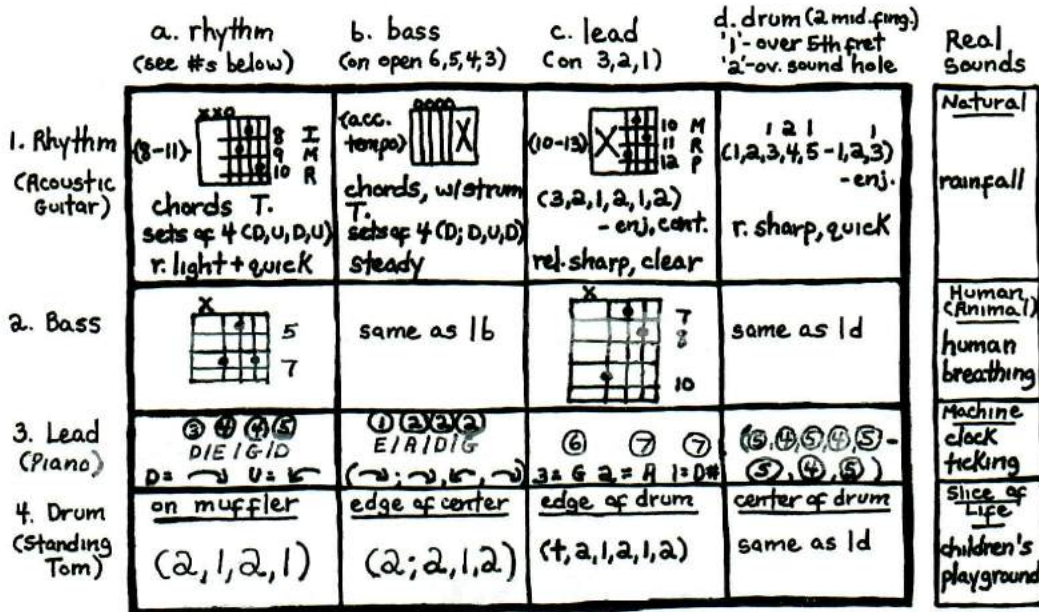 a. rhythm
(see #s below)
b. bass
(on open 6,5,4,3)
c. lead
(on 3,2,1)
d. drum (2 mid. fing.)
'1'- over 5th fret
'2'-ov. sound hole
Real
Sounds
1. Rhythm
(Acoustic
Guitar)
xxo
(8-11)-
8 I
9 M
10 R
chords T.
sets of 4 (D,U,D,U)
r. light + quick
oooo
(acc.
tempo)
X
chords, w/strum
T.
sets of 4 (D; D,U,D)
steady
(10-13)
X
10 M
11 R
12 P
(3,2,1,2,1,2)
- enj, cont.
rel. sharp, clear
1 2 1 1
(1,2,3,4,5-1,2,3)
- enj.
r. sharp, quick
Natural
rainfall
2. Bass
X
5
7
same as 1b
X
7
8
10
same as 1d
Human
(Animal)
human
breathing
3. Lead
(Piano)
3 4 4 5
D/E/G/D
D= U=
1 2 2 2
E/A/D/G
( ; , , )
6 7 7
3=G 2=A 1=D#
(5,4,5,4,5-
5,4,5)
Machine
clock
ticking
4. Drum
(Standing
Tom)
on muffler
(2,1,2,1)
edge of center
(2;2,1,2)
edge of drum
(t,2,1,2,1,2)
center of drum
same as 1d
Slice of
Life
children's
playground